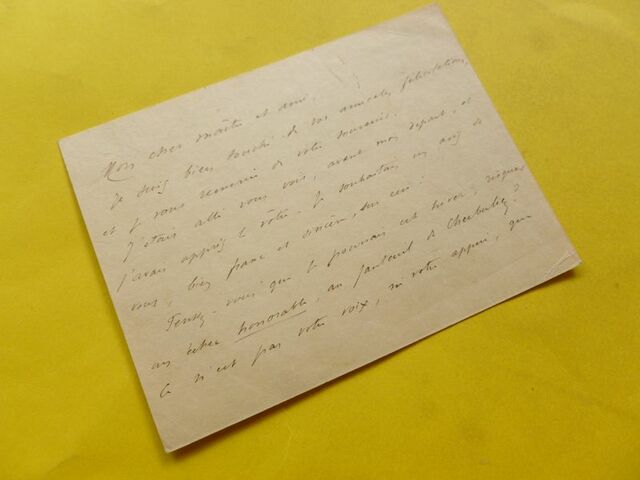 Mon cher maître et ami,
Je suis bien touché de vos amicales félicitations,
et je vous remercie de votre souvenir.
J'étais allé vous voir, avant mon départ, et
j'avais appris le vôtre. Je souhaitais un avis de
vous, bien franc et sincère, sur ceci:
Pensez-vous que je pourrais cet hiver, risquer
un échec honorable, au fauteuil de Cherbuliez?
Ce n'est pas votre voix, ni votre appui, que